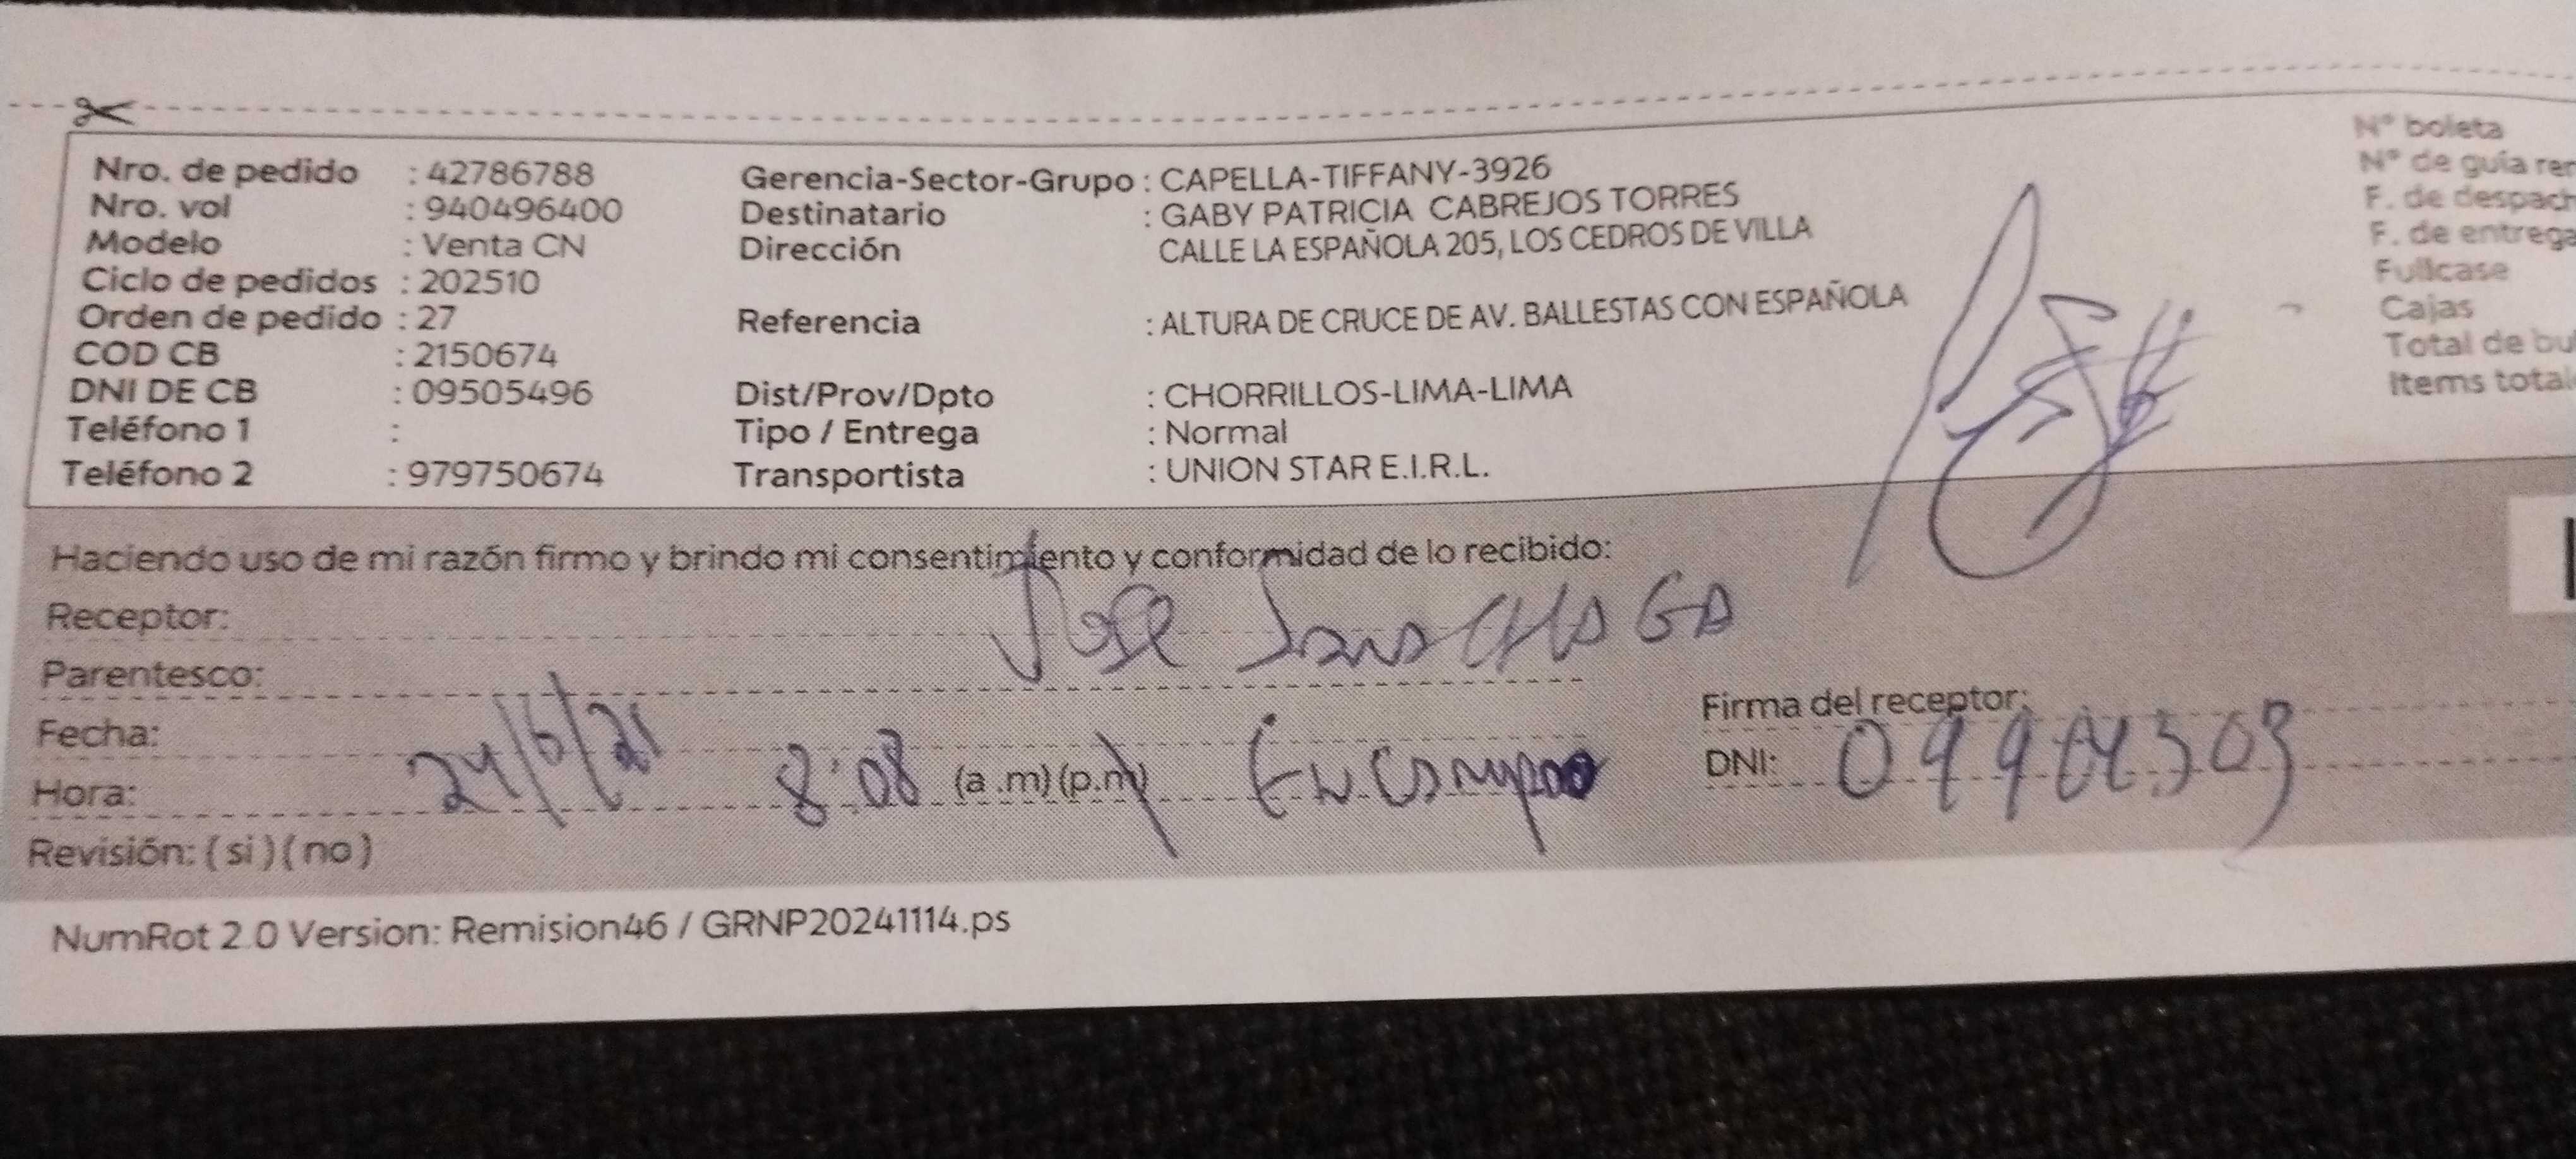 Nro. de pedido : 42786788
Nro. vol : 940496400
Modelo : Venta CN
Ciclo de pedidos : 202510
Orden de pedido : 27
COD CB : 2150674
DNI DE CB : 09505496
Teléfono 1 :
Teléfono 2 : 979750674
Gerencia-Sector-Grupo : CAPELLA-TIFFANY-3926
Destinatario : GABY PATRICIA CABREJOS TORRES
Dirección CALLE LA ESPAÑOLA 205, LOS CEDROS DE VILLA
Referencia : ALTURA DE CRUCE DE AV. BALLESTAS CON ESPAÑOLA
Dist/Prov/Dpto : CHORRILLOS-LIMA-LIMA
Tipo / Entrega : Normal
Transportista : UNION STAR E.I.R.L.
N° boleta
N° de guía
F. de
F. de
Fullcase
Cajas
Total de
Items
Haciendo uso de mi razón firmo y brindo mi consentimiento y conformidad de lo recibido:
Receptor: Jose
Parentesco:
Fecha:
Hora: 8:08 (a .m) (p.m)
Revisión: ( si ) ( no )
Firma del receptor:
DNI:
NumRot 2.0 Version: Remision46 / GRNP20241114.ps